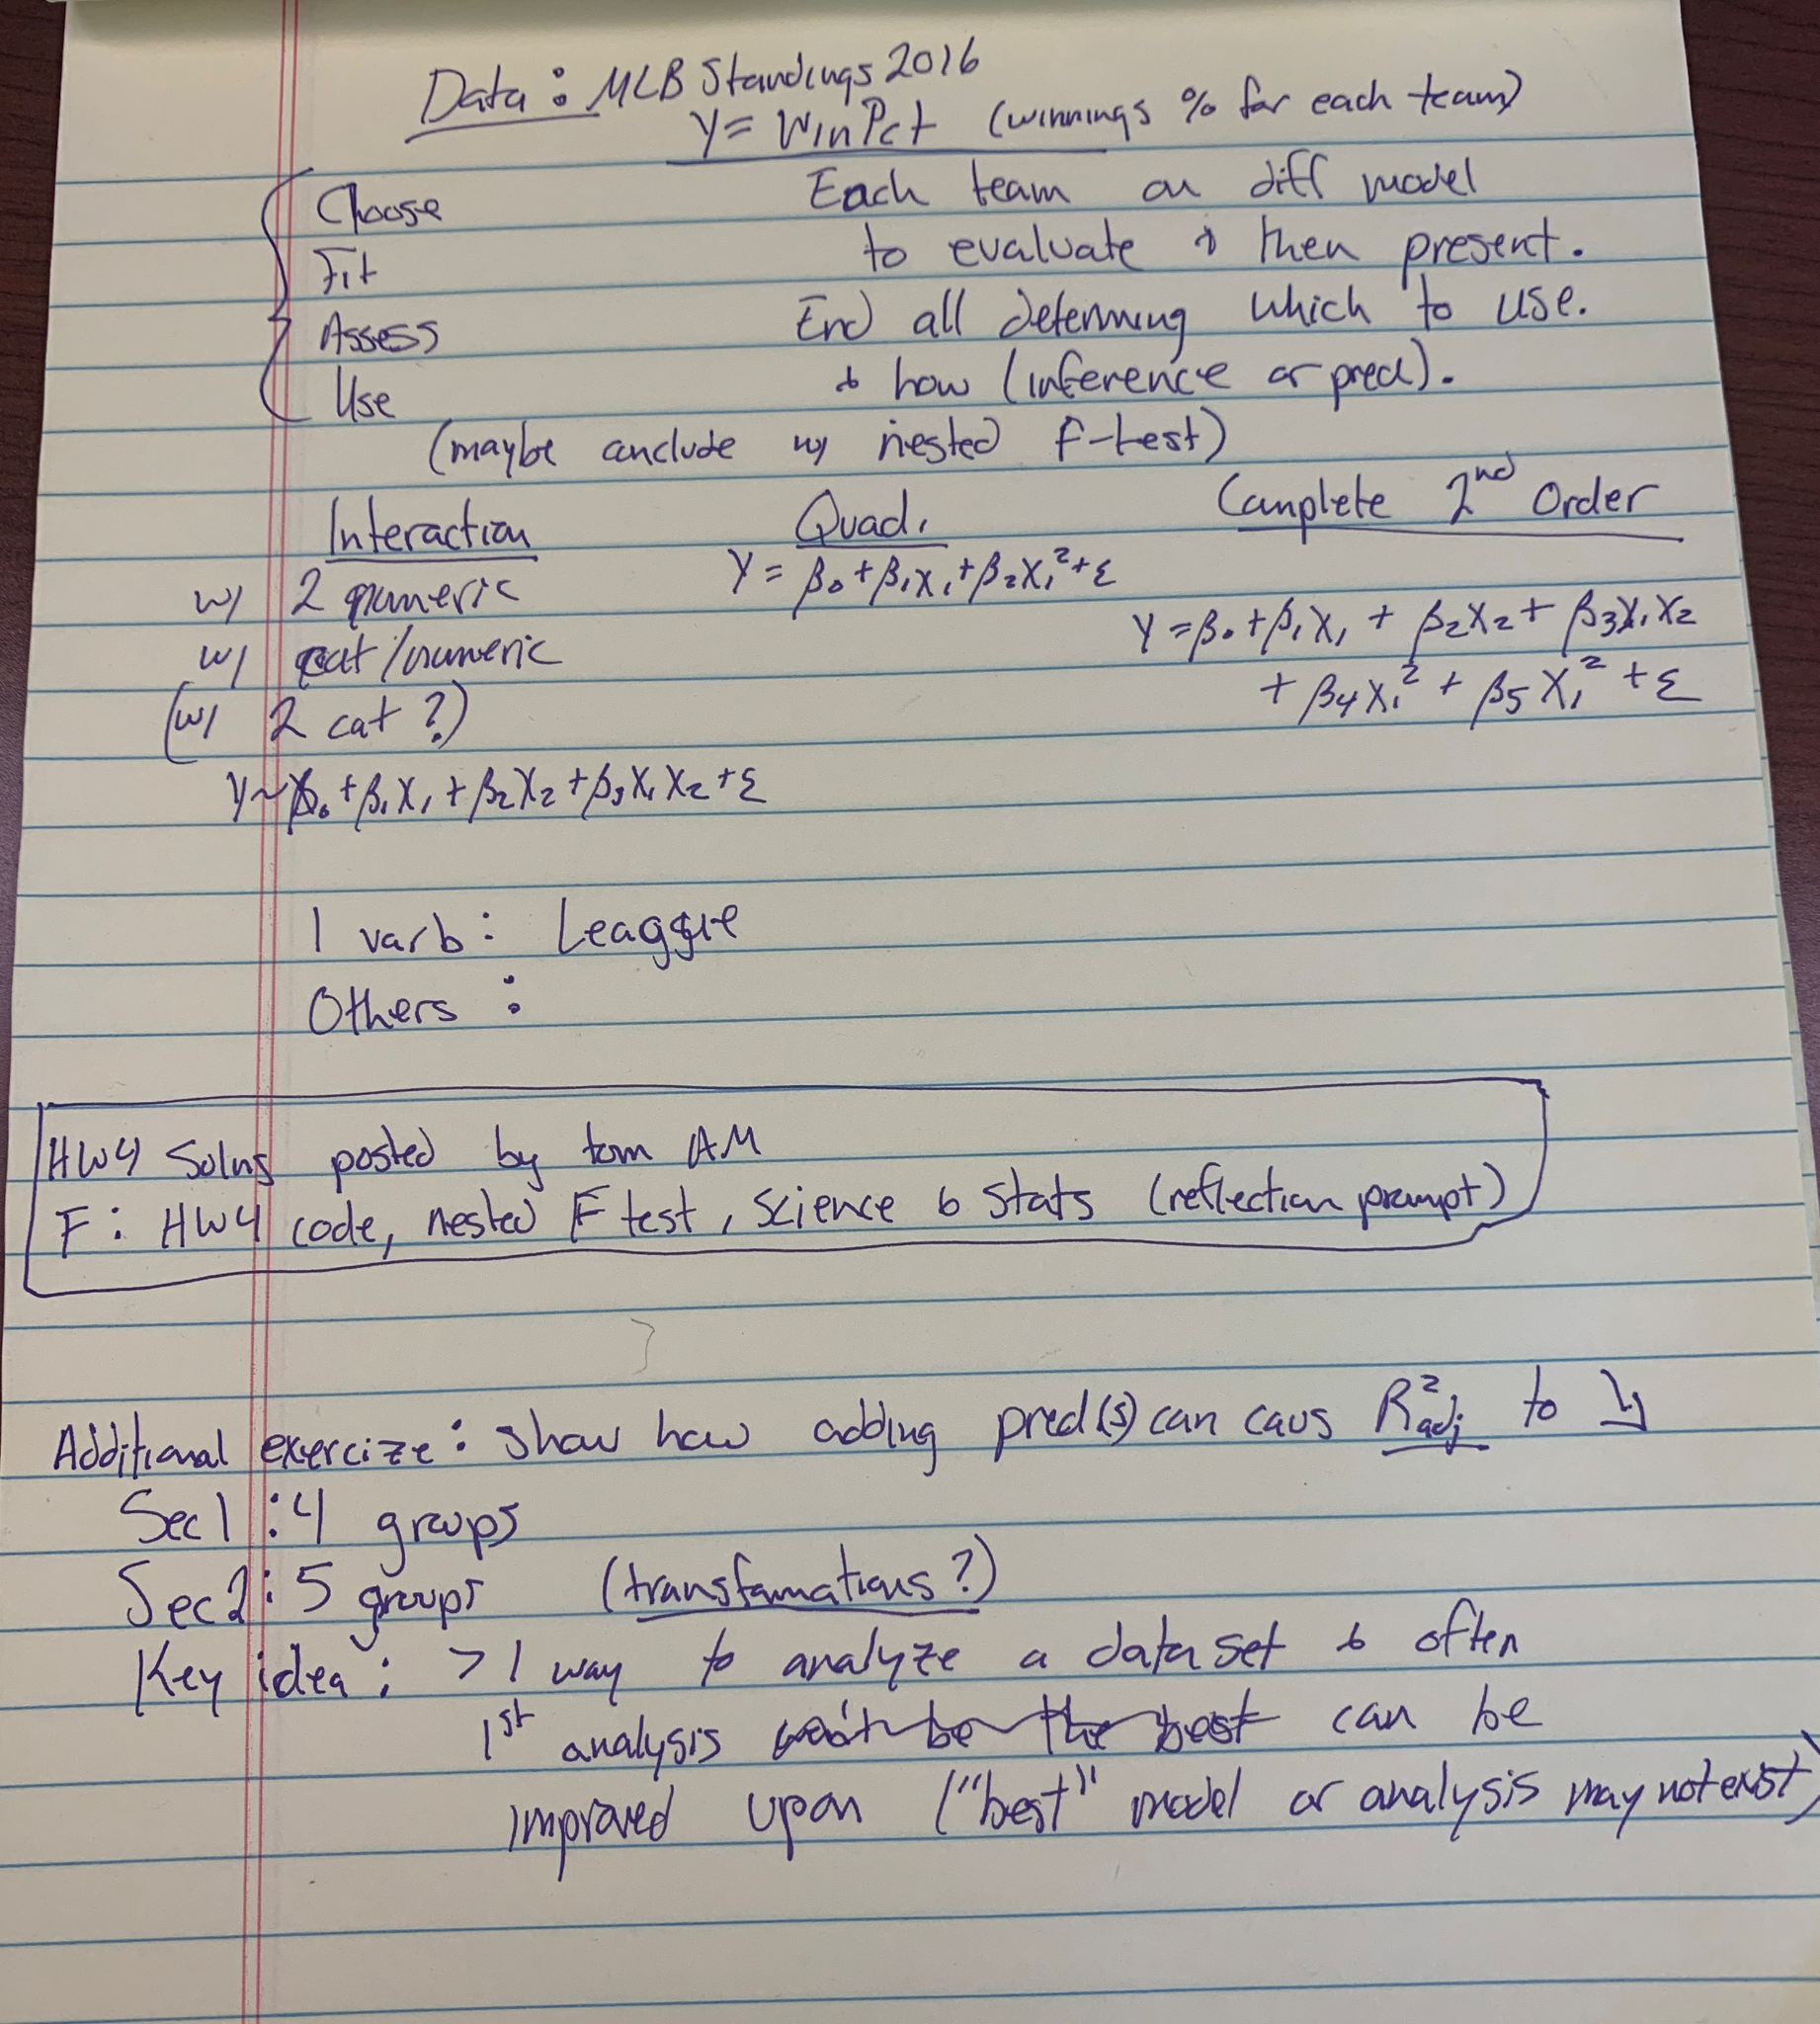 Data: MLB Standings 2016
Y = WinPct (winnings % for each team)
Choose
Fit
Assess
Use
Each team on diff model
to evaluate & then present.
End all determing which to use.
& how (inference or pred).
(maybe conclude w/ nested F-test)
Interaction
w/ 2 numeric
w/ cat/numeric
(w/ 2 cat?)
Y ~ β₀ + β₁X₁ + β₂X₂ + β₃X₁X₂ + ε
Quad.
Y = β₀ + β₁X₁ + β₂X₁² + ε
Complete 2nd Order
Y = β₀ + β₁X₁ + β₂X₂ + β₃X₁X₂
+ β₄X₁² + β₅X₁² + ε
1 varb: League
Others:
HW4 Solns posted by tom AM
F: HW4 code, nested F test, Science & Stats (reflection prompt)
Additional exercize: show how adding pred(s) can caus R²adj to ↘
Sec1: 4 groups
Sec2: 5 groups (transformations?)
Key idea: > 1 way to analyze a data set & often
1st analysis won't be the best can be
improved upon ("best" model or analysis may not exist)